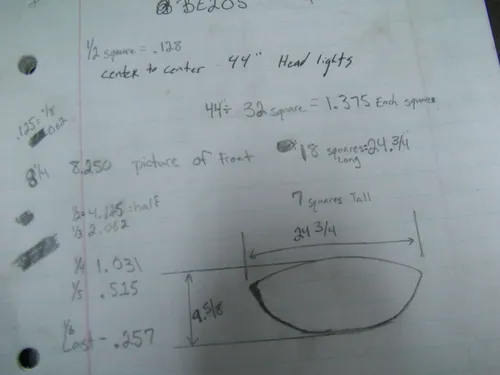 BEZOS
1/2 square = .128
center to center 44" Head lights
44 ÷ 32 square = 1.375 Each square
.125 = 1/8
.062
8 1/4 8.250 picture of front
18 squares = 24.3/4
Long
7 squares Tall
1/2 = 4.125 = half
1/3 2.062
24 3/4
1/4 1.031
1/5 .515
9.5/8
1/6
Last - .257